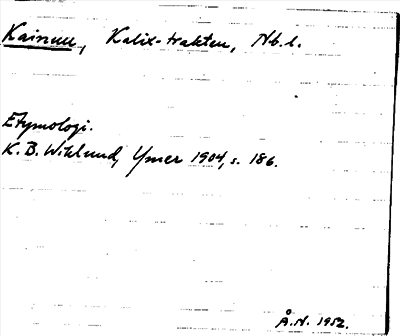 Kainuu, Kalix-trakten, Nb.l.
Etymologi.
K.B. Wiklund, Ymer 1904, s. 186.
Å.N. 1952.